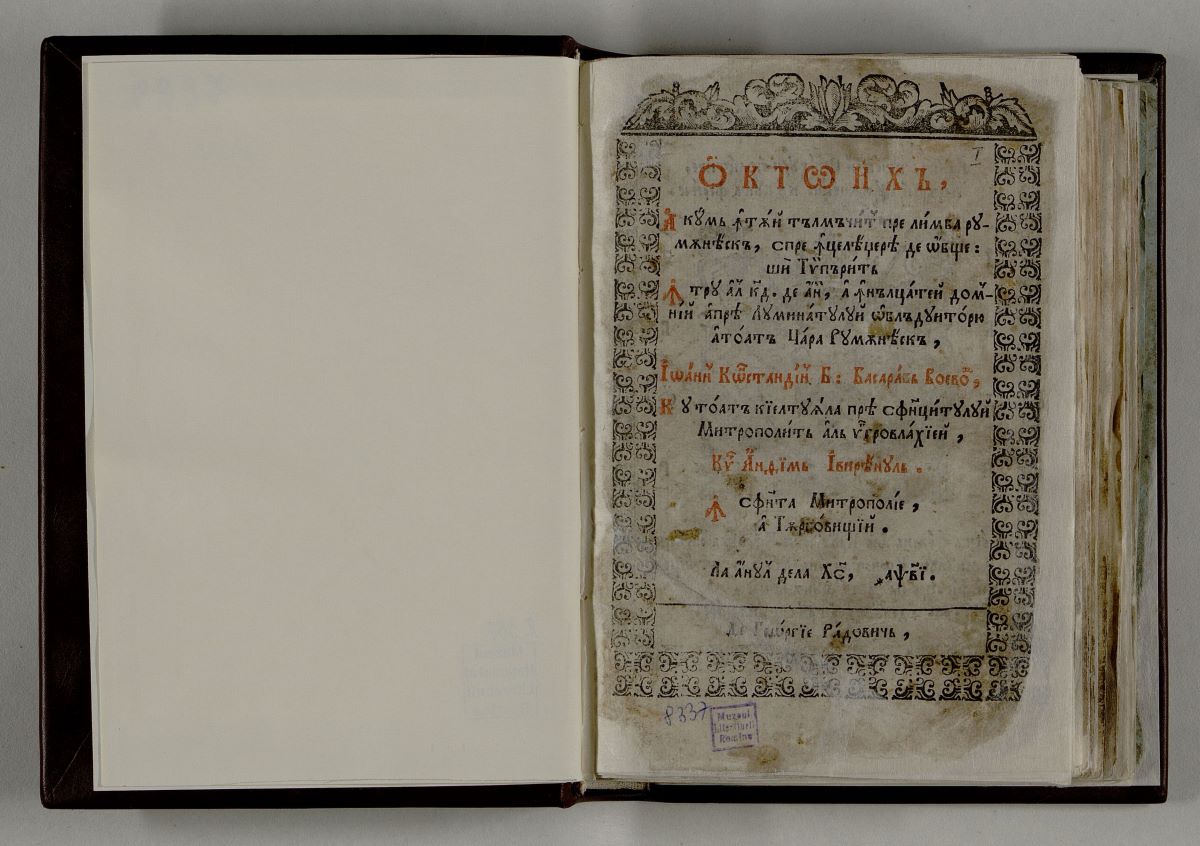 I
ѺКТѠИХЪ,
А҆кꙋ́мь ꙟ҆тѫ́й тълмъчи́т пре ли́мба рꙋ-
мѫнѣ́скъ, спре ꙟ҆целѣ́церѣ де ѡ҆́бще:
ши Тѷпъри́тъ
Ꙟтрꙋ а҆л к҃д. де а҆́нй, а҆ ꙟ҆нълца́тей дом-
нїй а҆прѣ Лꙋмина́тꙋлꙋй ѡ҆блъдꙋито́рю
а҆то́атъ Цара Рꙋмѫнѣ́скъ,
Іѡа́нй Кѡстандїй Б: Басара́бь Воево́д,
Кꙋ то́атъ кїелтꙋѧ́ла прѣ сфинци́тꙋлꙋй
Митрополи́ть а҆ль ѹ҆гровла́хїей,
Кѵ́р А҆нѳїмь І҆вирѣ́нꙋль.
Ꙟ сфн҃та Митропо́лїе,
а҆ Тѫрго́вищїй.
Ла а҆́нꙋл дела Хс҃, ҂аѱ҃ві.
Де Геѡ́ргїе Ра́довичь,
8337
Muzeul
Literaturii
Române